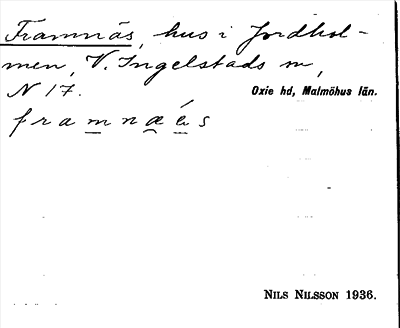 Framnäs, hus i Jordhol-
men, V. Ingelstads sn,
N 17.
Oxie hd, Malmöhus län.
f r a m n æ é s
NILS NILSSON 1936.